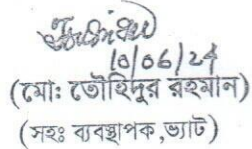 10/06/24
(মোঃ তৌহিদুর রহমান)
(সহঃ ব্যবস্থাপক,ভ্যাট)